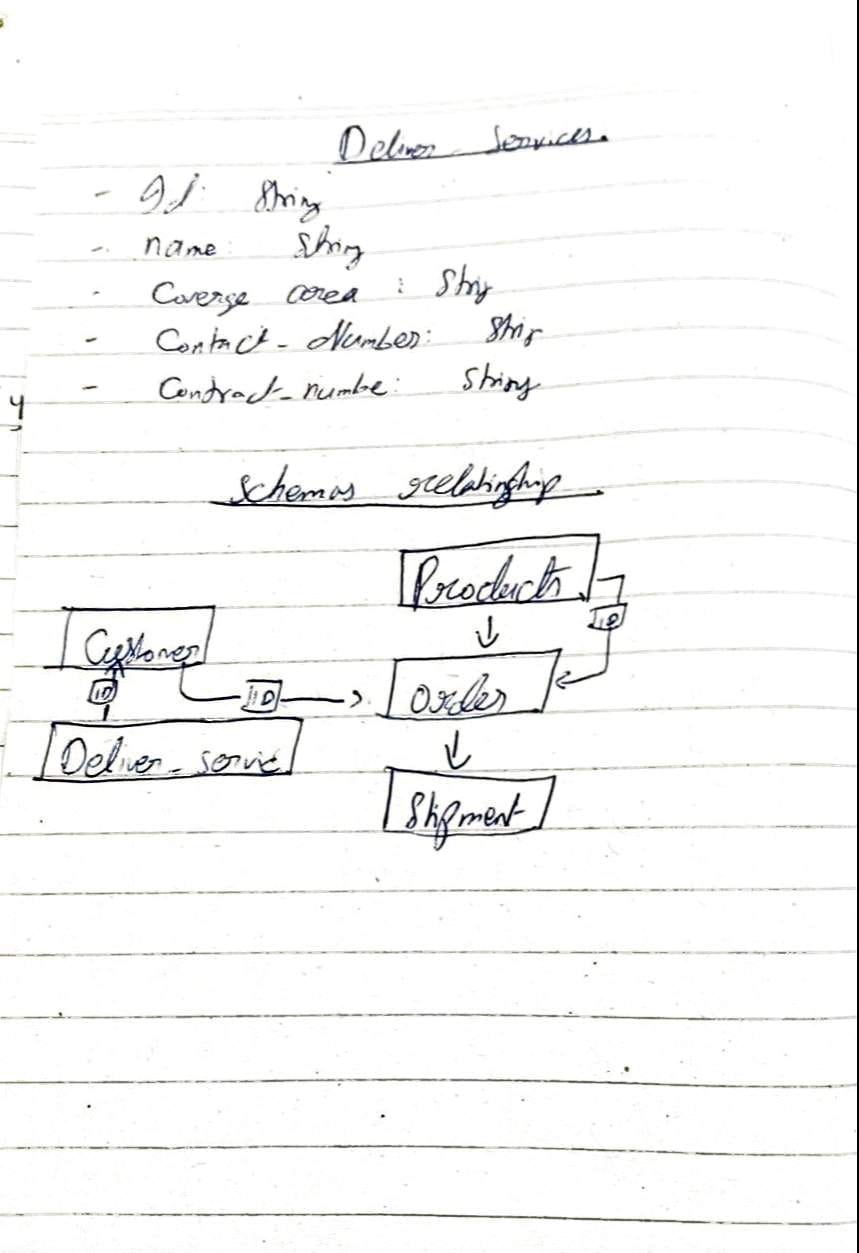 Deliver Services.
- Id: String
- name: String
- Coverge area : Strig
- Contact - Number: Strig
- Contract - numbe: String
4
Schemas relationship
Products
ID
Customer
ID
ID
Order
Deliver - servic
Shipment